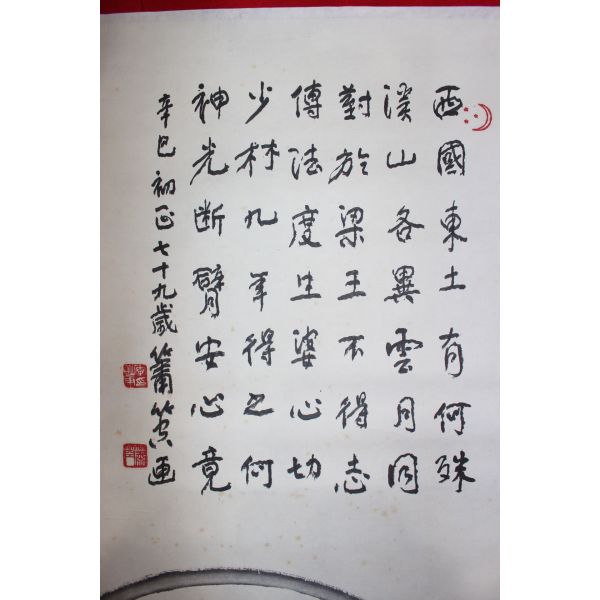 西國東土有何殊
渓山各異雲月同
對於梁王不得志
傳法度生婆心切
少林九年得之何
神光断臂安心竟
辛巳初正七十九歳画